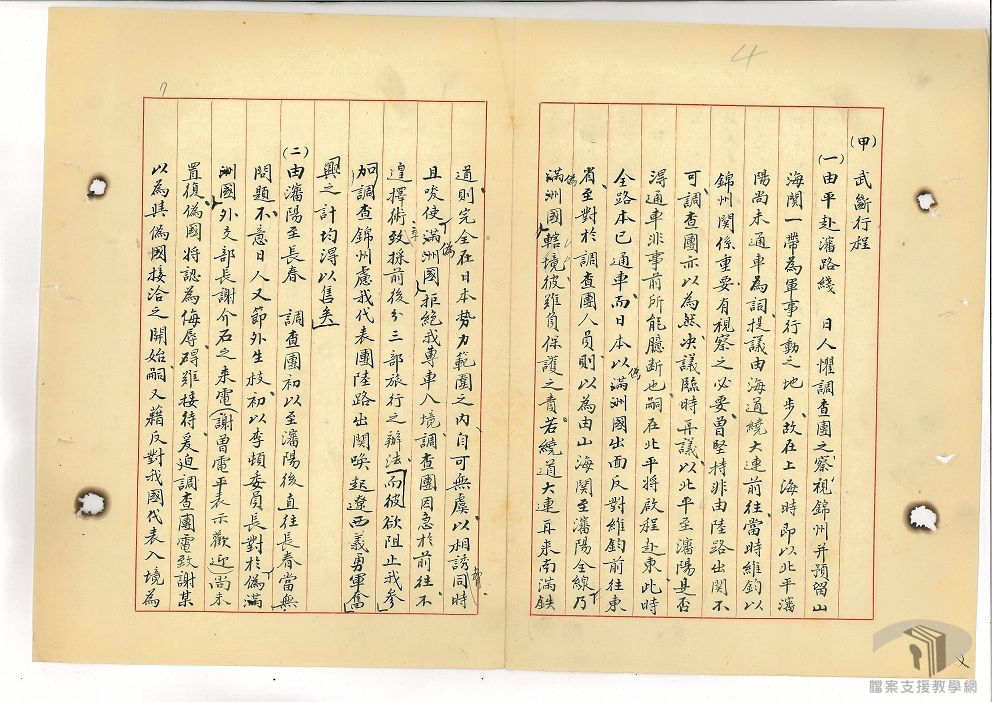 4
(甲)武斷行程
(一)由平赴瀋路綫 日人懼調查團之察視錦州并預留山
海関一帶為軍事行動之地步、故在上海時即以北平瀋
陽尚未通車為詞、提議由海道繞大連前往、當時維鈞以
錦州関係重要、有視察之必要、曾堅持非由陸路出関不
可、調查團亦以為然、决議臨時再議、以北平至瀋陽是否
得通車非事前所能臆斷也、嗣在北平將啟程赴東、此時
全路本已通車、而日本以偽滿洲國出面反對維鈞前往東
省、至對於調查團人員、則以為由山海関至瀋陽全線乃
偽滿洲國轄境、彼雖負保護之責、若繞道大連再来南滿鉄
7
道、則完全在日本勢力範圍之内、自可無虞、以相誘、同時
且唆使偽滿洲國拒絕我專車入境、調查團因急於前往、不
遑擇術、致採前後分三部旅行之辦法、而彼欲阻止我參
加調查錦州、慮我代表團陸路出関喚起遼西義勇軍奮
興之計均得以售矣、
(二)由瀋陽至長春 調查團初以至瀋陽後直往長春當無
問題、不意日人又節外生枝、初以李頓委員長對於偽滿
洲國外交部長謝介石之来電(謝曾電平表示歡迎)尚未
置復、偽國將認為侮辱、碍難接待、爰迫調查團電致謝某
以為與偽國接洽之開始、嗣又藉反對我國代表入境為
檔案支援教學網